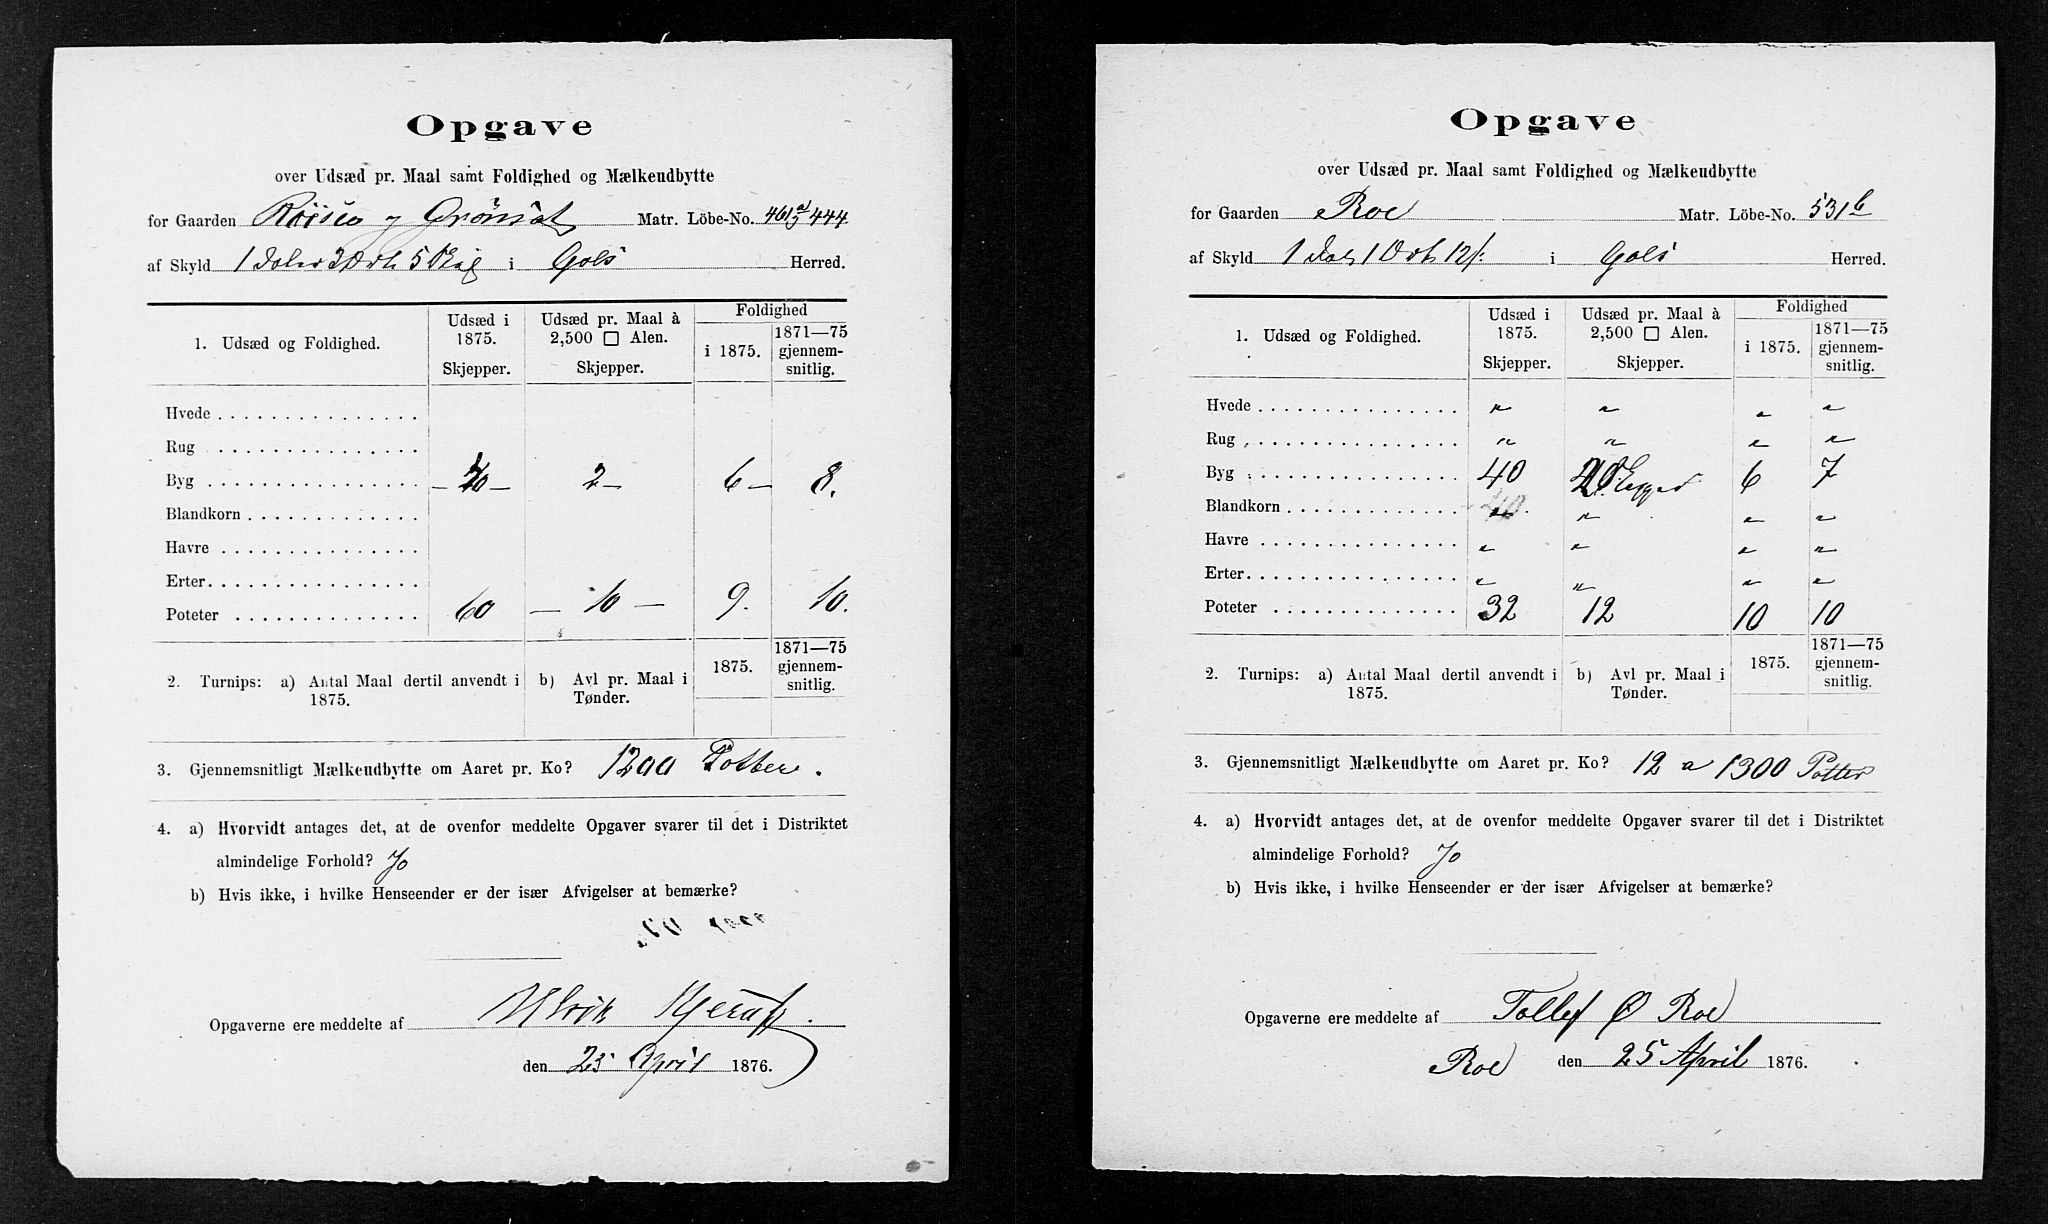 Opgave
over Udsæd pr. Maal samt Foldighed og Mælkeudbytte
for Gaarden og Grönset Matr. Löbe-No. 461 a/ 444
af Skyld 1 Daler 3 Ort 5 i Gols Herred.
1. Udsæd og Foldighed. Udsæd i 1875. Skjepper. Udsæd pr. Maal à 2,500 □ Alen. Skjepper. Foldighed i 1875. 1871—75 gjennem-snitlig.
Hvede
Rug
Byg — — 2 — 6 — 8.
Blandkorn
Havre
Erter
Poteter 60 — 10 — 9. 10.
2. Turnips: a) Antal Maal dertil anvendt i 1875. b) Avl pr. Maal i Tønder. 1875. 1871—75 gjennem-snitlig.
3. Gjennemsnitligt Mælkeudbytte om Aaret pr. Ko? 1200 Potter.
4. a) Hvorvidt antages det, at de ovenfor meddelte Opgaver svarer til det i Distriktet
almindelige Forhold? Jo
b) Hvis ikke, i hvilke Henseender er der især Afvigelser at bemærke?
Opgaverne ere meddelte af Ulrik
den 25 April 1876.
Opgave
over Udsæd pr. Maal samt Foldighed og Mælkeudbytte
for Gaarden Roe Matr. Löbe-No. 531 b
af Skyld 1 Dal 1 Ort 12 /: i Gols Herred.
1. Udsæd og Foldighed. Udsæd i 1875. Skjepper. Udsæd pr. Maal à 2,500 □ Alen. Skjepper. Foldighed i 1875. 1871—75 gjennem-snitlig.
Hvede " " " "
Rug " " " "
Byg 40 6 7
Blandkorn " " " "
Havre " " " "
Erter " " " "
Poteter 32 12 10 10
2. Turnips: a) Antal Maal dertil anvendt i 1875. b) Avl pr. Maal i Tønder. 1875. 1871—75 gjennem-snitlig.
3. Gjennemsnitligt Mælkeudbytte om Aaret pr. Ko? 12 a 1300 Potter
4. a) Hvorvidt antages det, at de ovenfor meddelte Opgaver svarer til det i Distriktet
almindelige Forhold? Jo
b) Hvis ikke, i hvilke Henseender er der især Afvigelser at bemærke?
Opgaverne ere meddelte af Tollef Ø Roe
Roe den 25 April 1876.